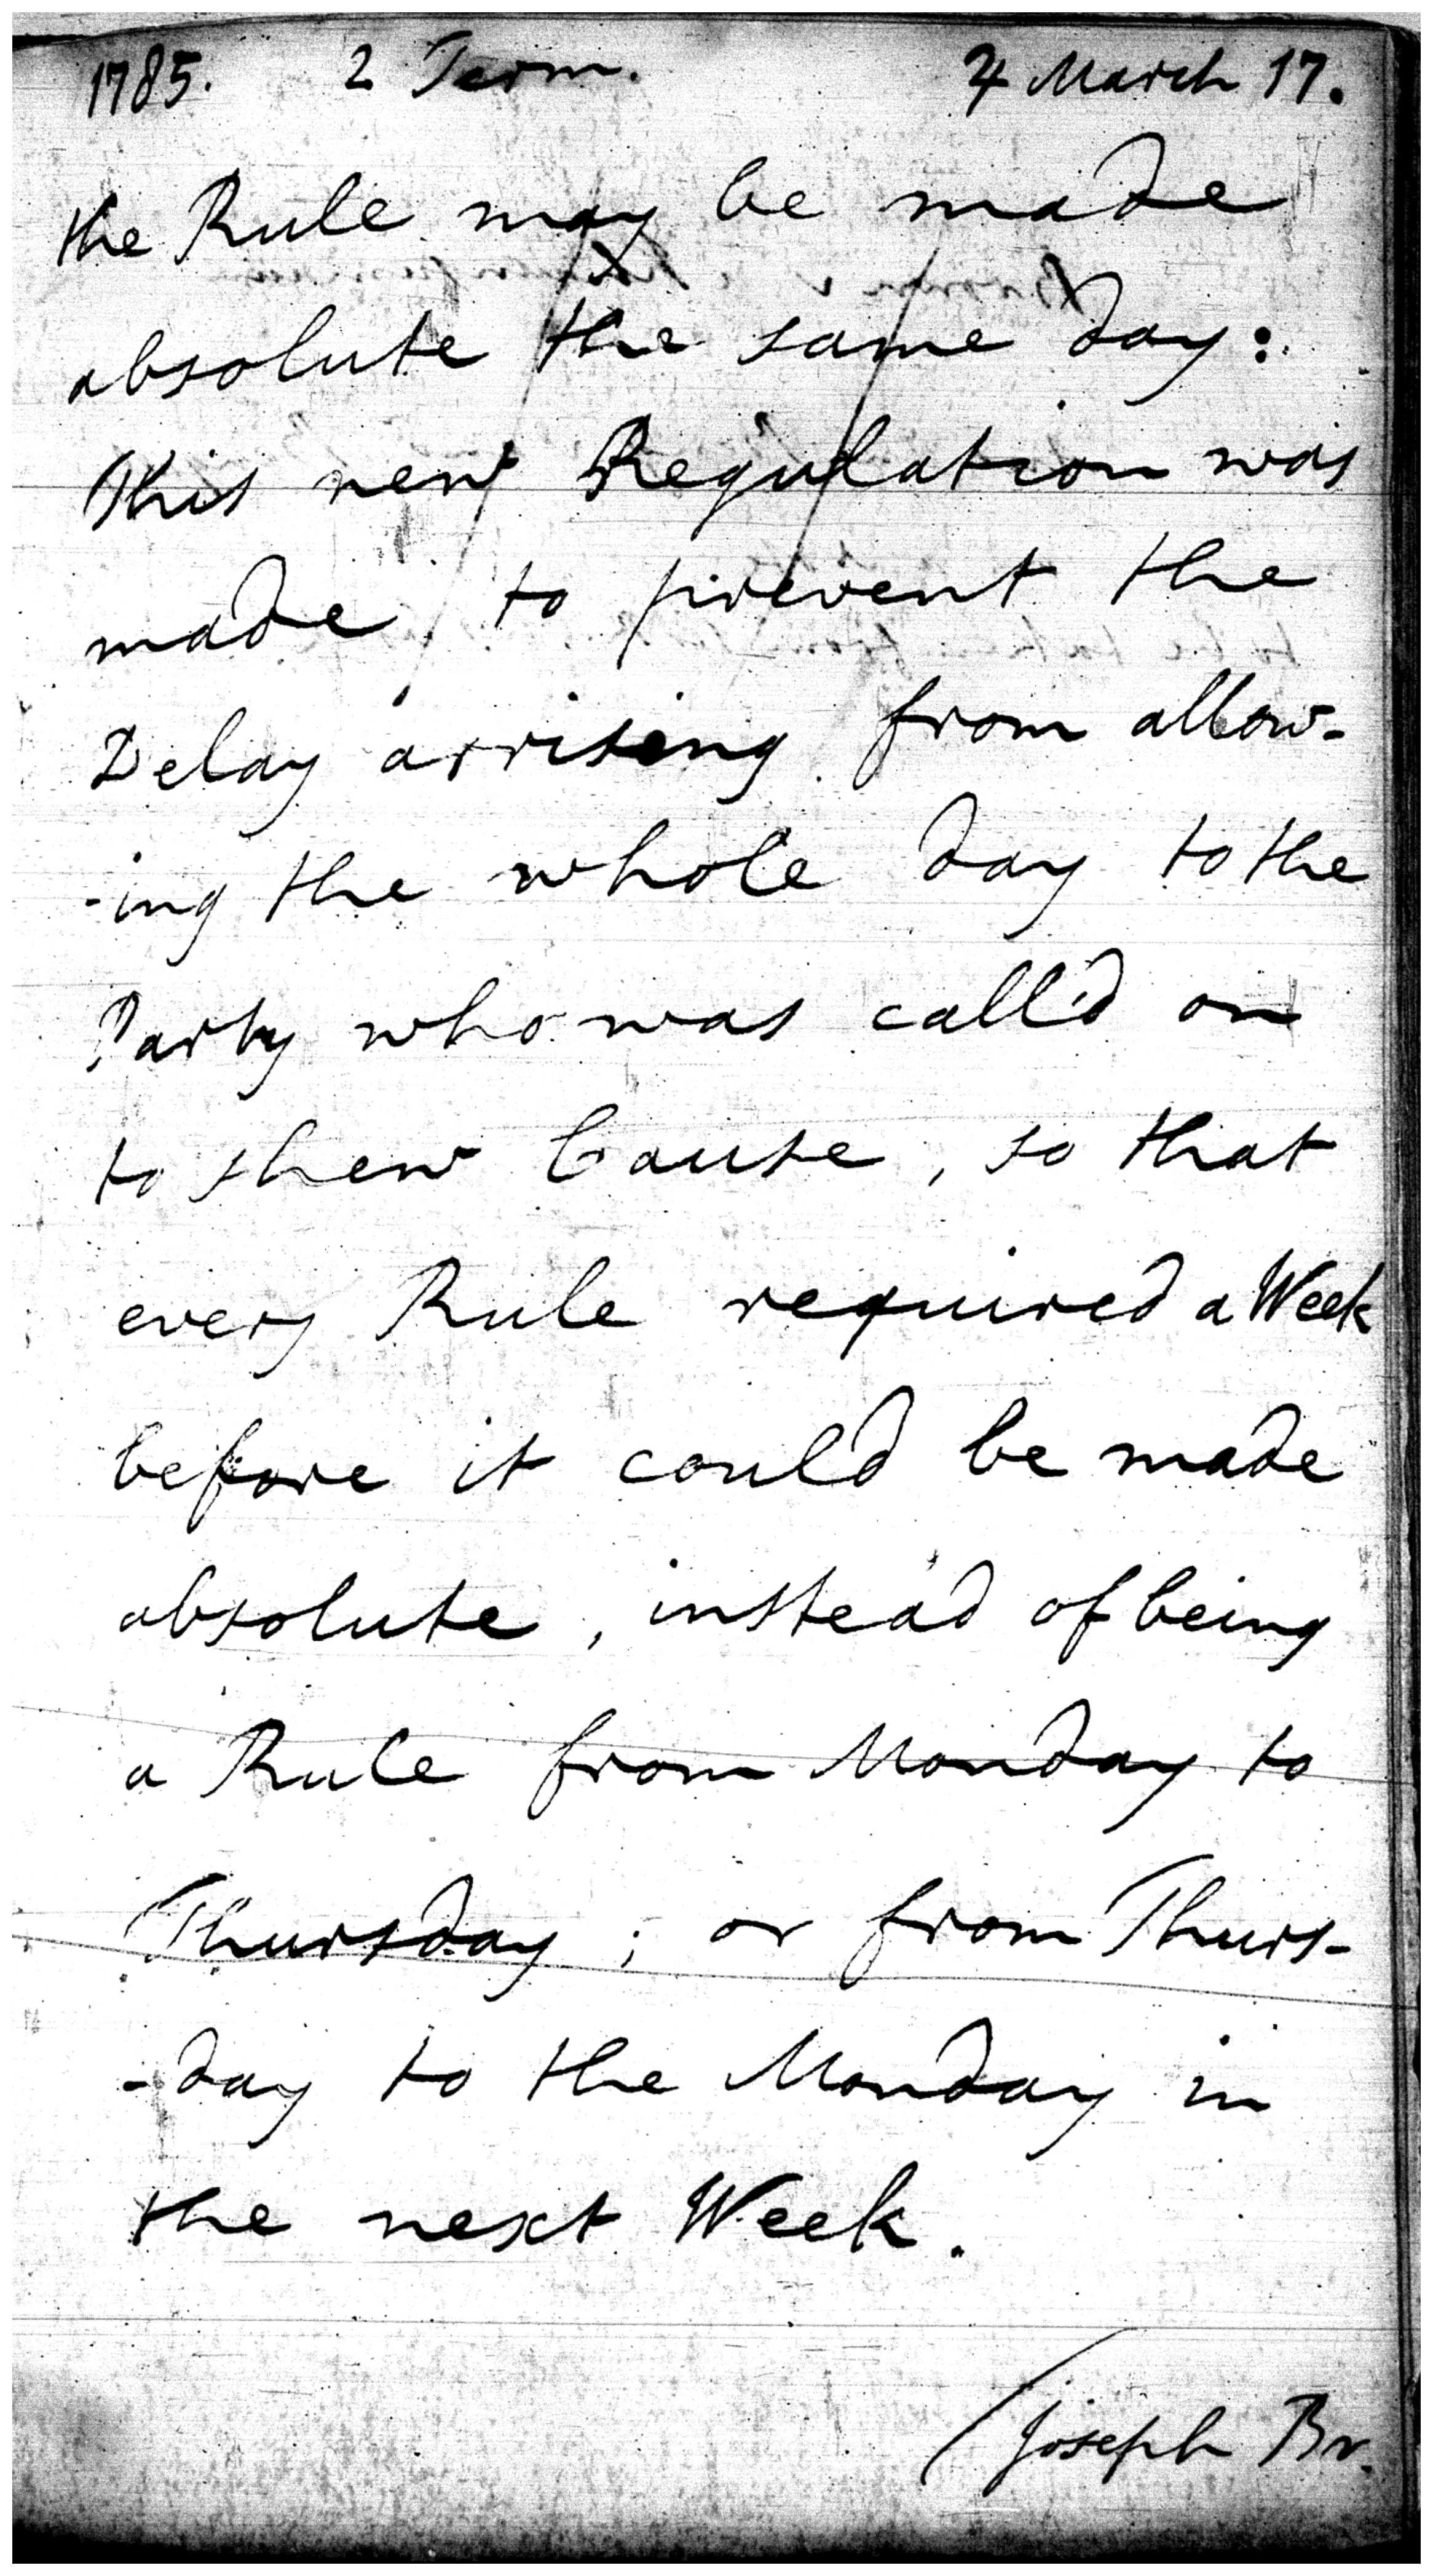 1785. 2 Term. 4 March 17.
the Rule may be made
absolute the same day:
This new Regulation was
made to prevent the
Delay arrising from allow-
-ing the whole day to the
Party who was call'd on
to shew Cause, so that
every Rule required a Week
before it could be made
absolute, instead of being
a Rule from Monday to
Thursday; or from Thurs-
-day to the Monday in
the next Week.
(Joseph Br.